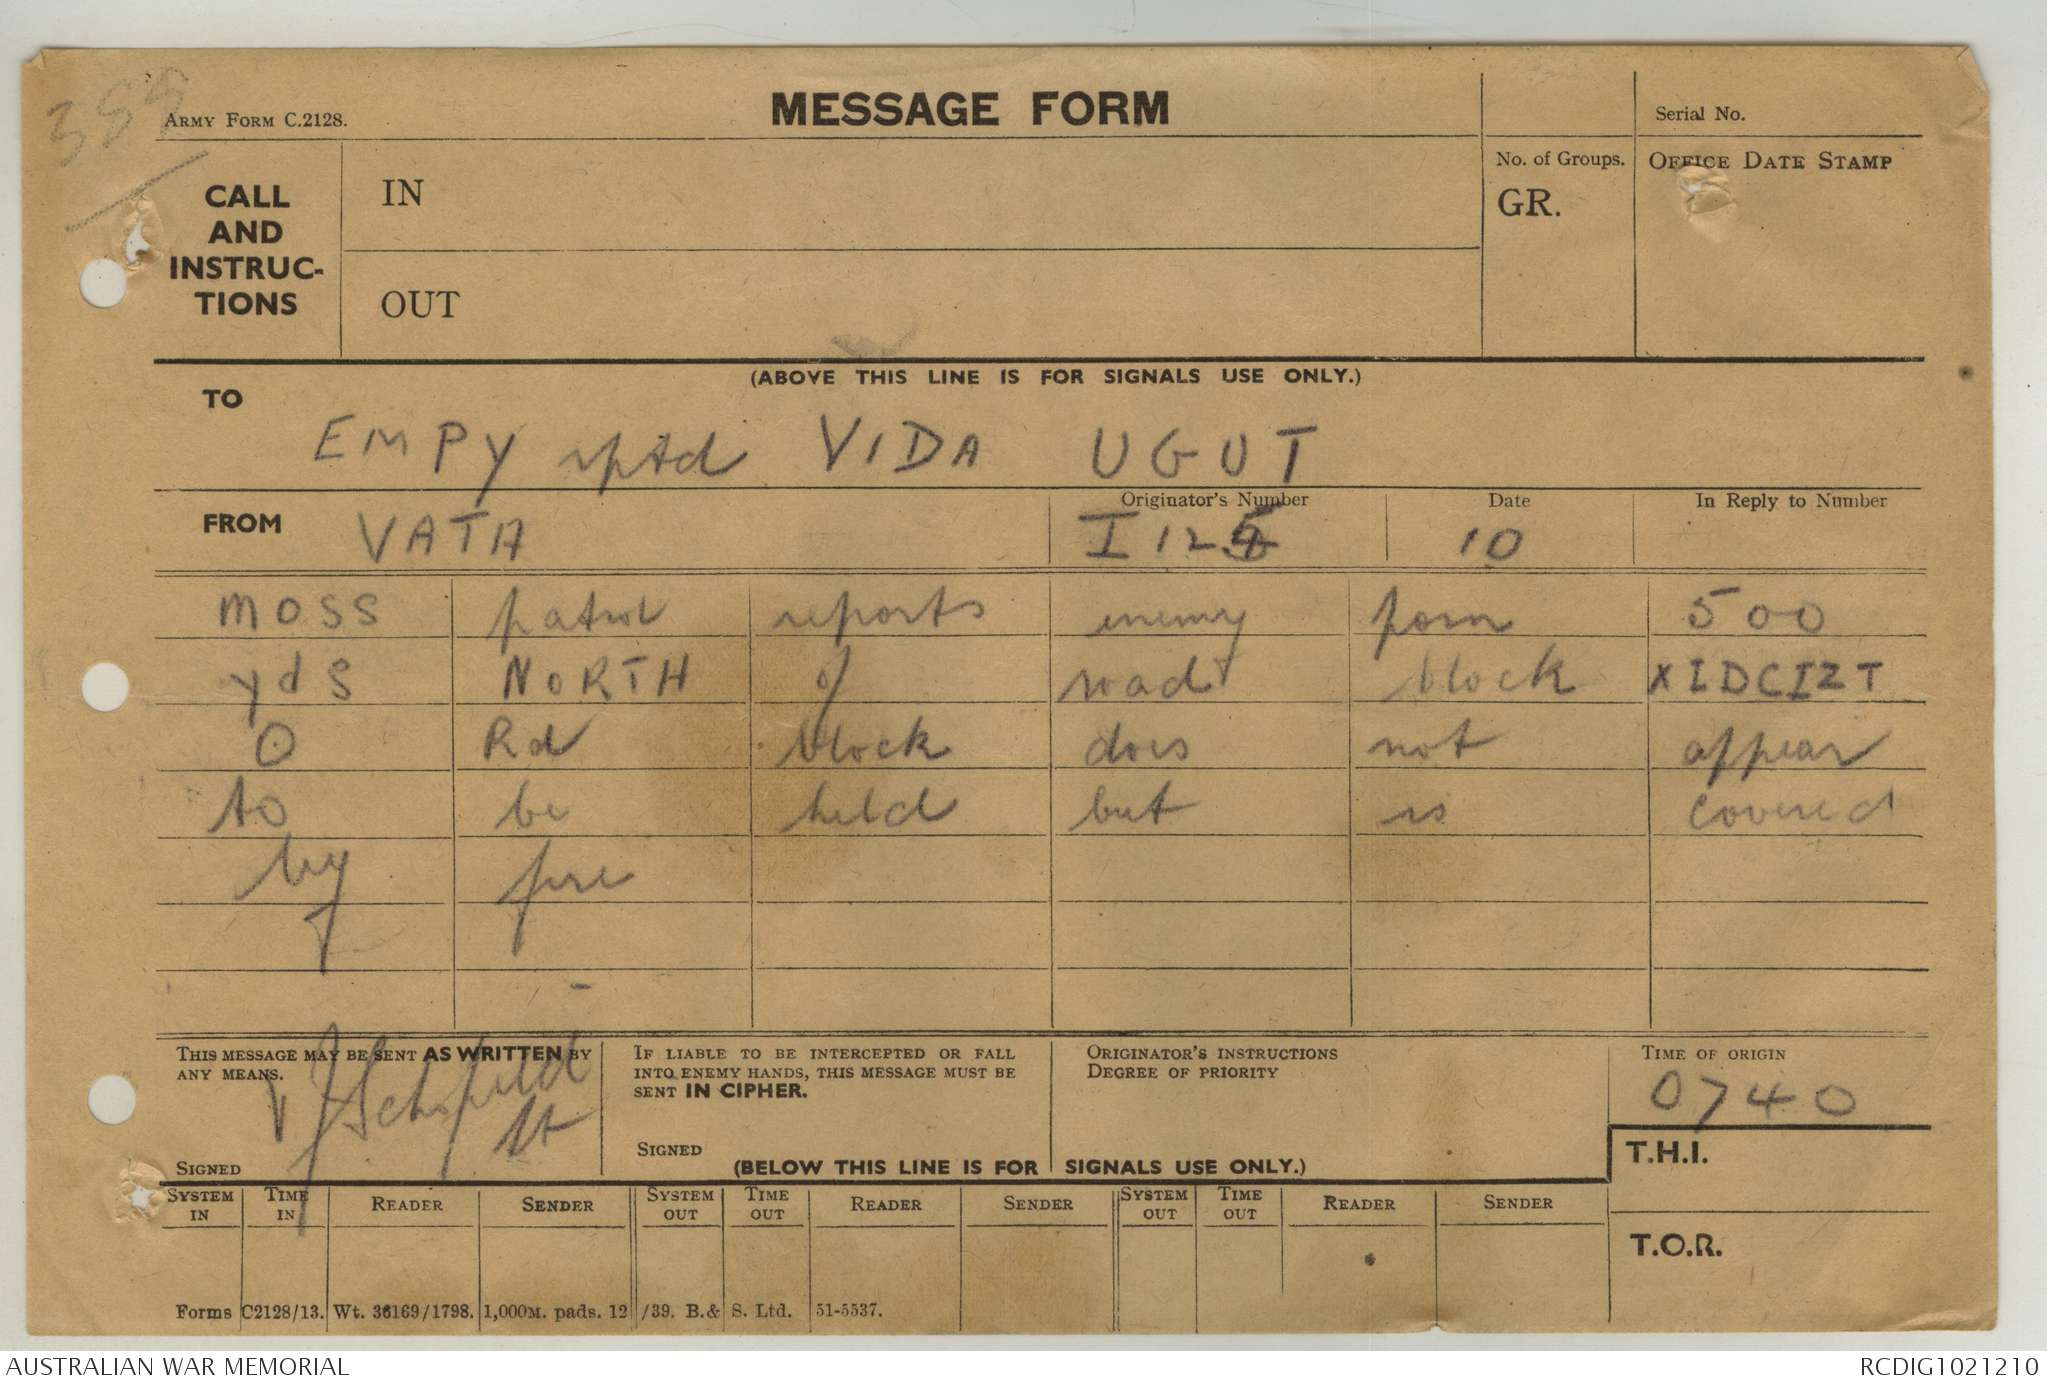 359
ARMY FORM C.2128.
MESSAGE FORM
Serial No.
CALL AND INSTRUC-TIONS
IN
OUT
No. of Groups.
GR.
OFFICE DATE STAMP
(ABOVE THIS LINE IS FOR SIGNALS USE ONLY.)
TO
EMPY rptd VIDA UGUT
FROM VATA
Originator's Number I 125
Date 10
In Reply to Number
MOSS patrol reports enemy posn 500
yds NORTH of road block
O Rd block does not appear
to be held but is covered
by fire
THIS MESSAGE MAY BE SENT AS WRITTEN BY ANY MEANS.
Schofield Lt
SIGNED
IF LIABLE TO BE INTERCEPTED OR FALL INTO ENEMY HANDS, THIS MESSAGE MUST BE SENT IN CIPHER.
SIGNED
ORIGINATOR'S INSTRUCTIONS
DEGREE OF PRIORITY
TIME OF ORIGIN
0740
T.H.I.
T.O.R.
(BELOW THIS LINE IS FOR SIGNALS USE ONLY.)
SYSTEM IN TIME IN READER SENDER SYSTEM OUT TIME OUT READER SENDER SYSTEM OUT TIME OUT READER SENDER
Forms C2128/13. Wt. 36169/1798. 1,000M. pads. 12/39. B.& S. Ltd. 51-5537.
AUSTRALIAN WAR MEMORIAL
RCDIG1021210